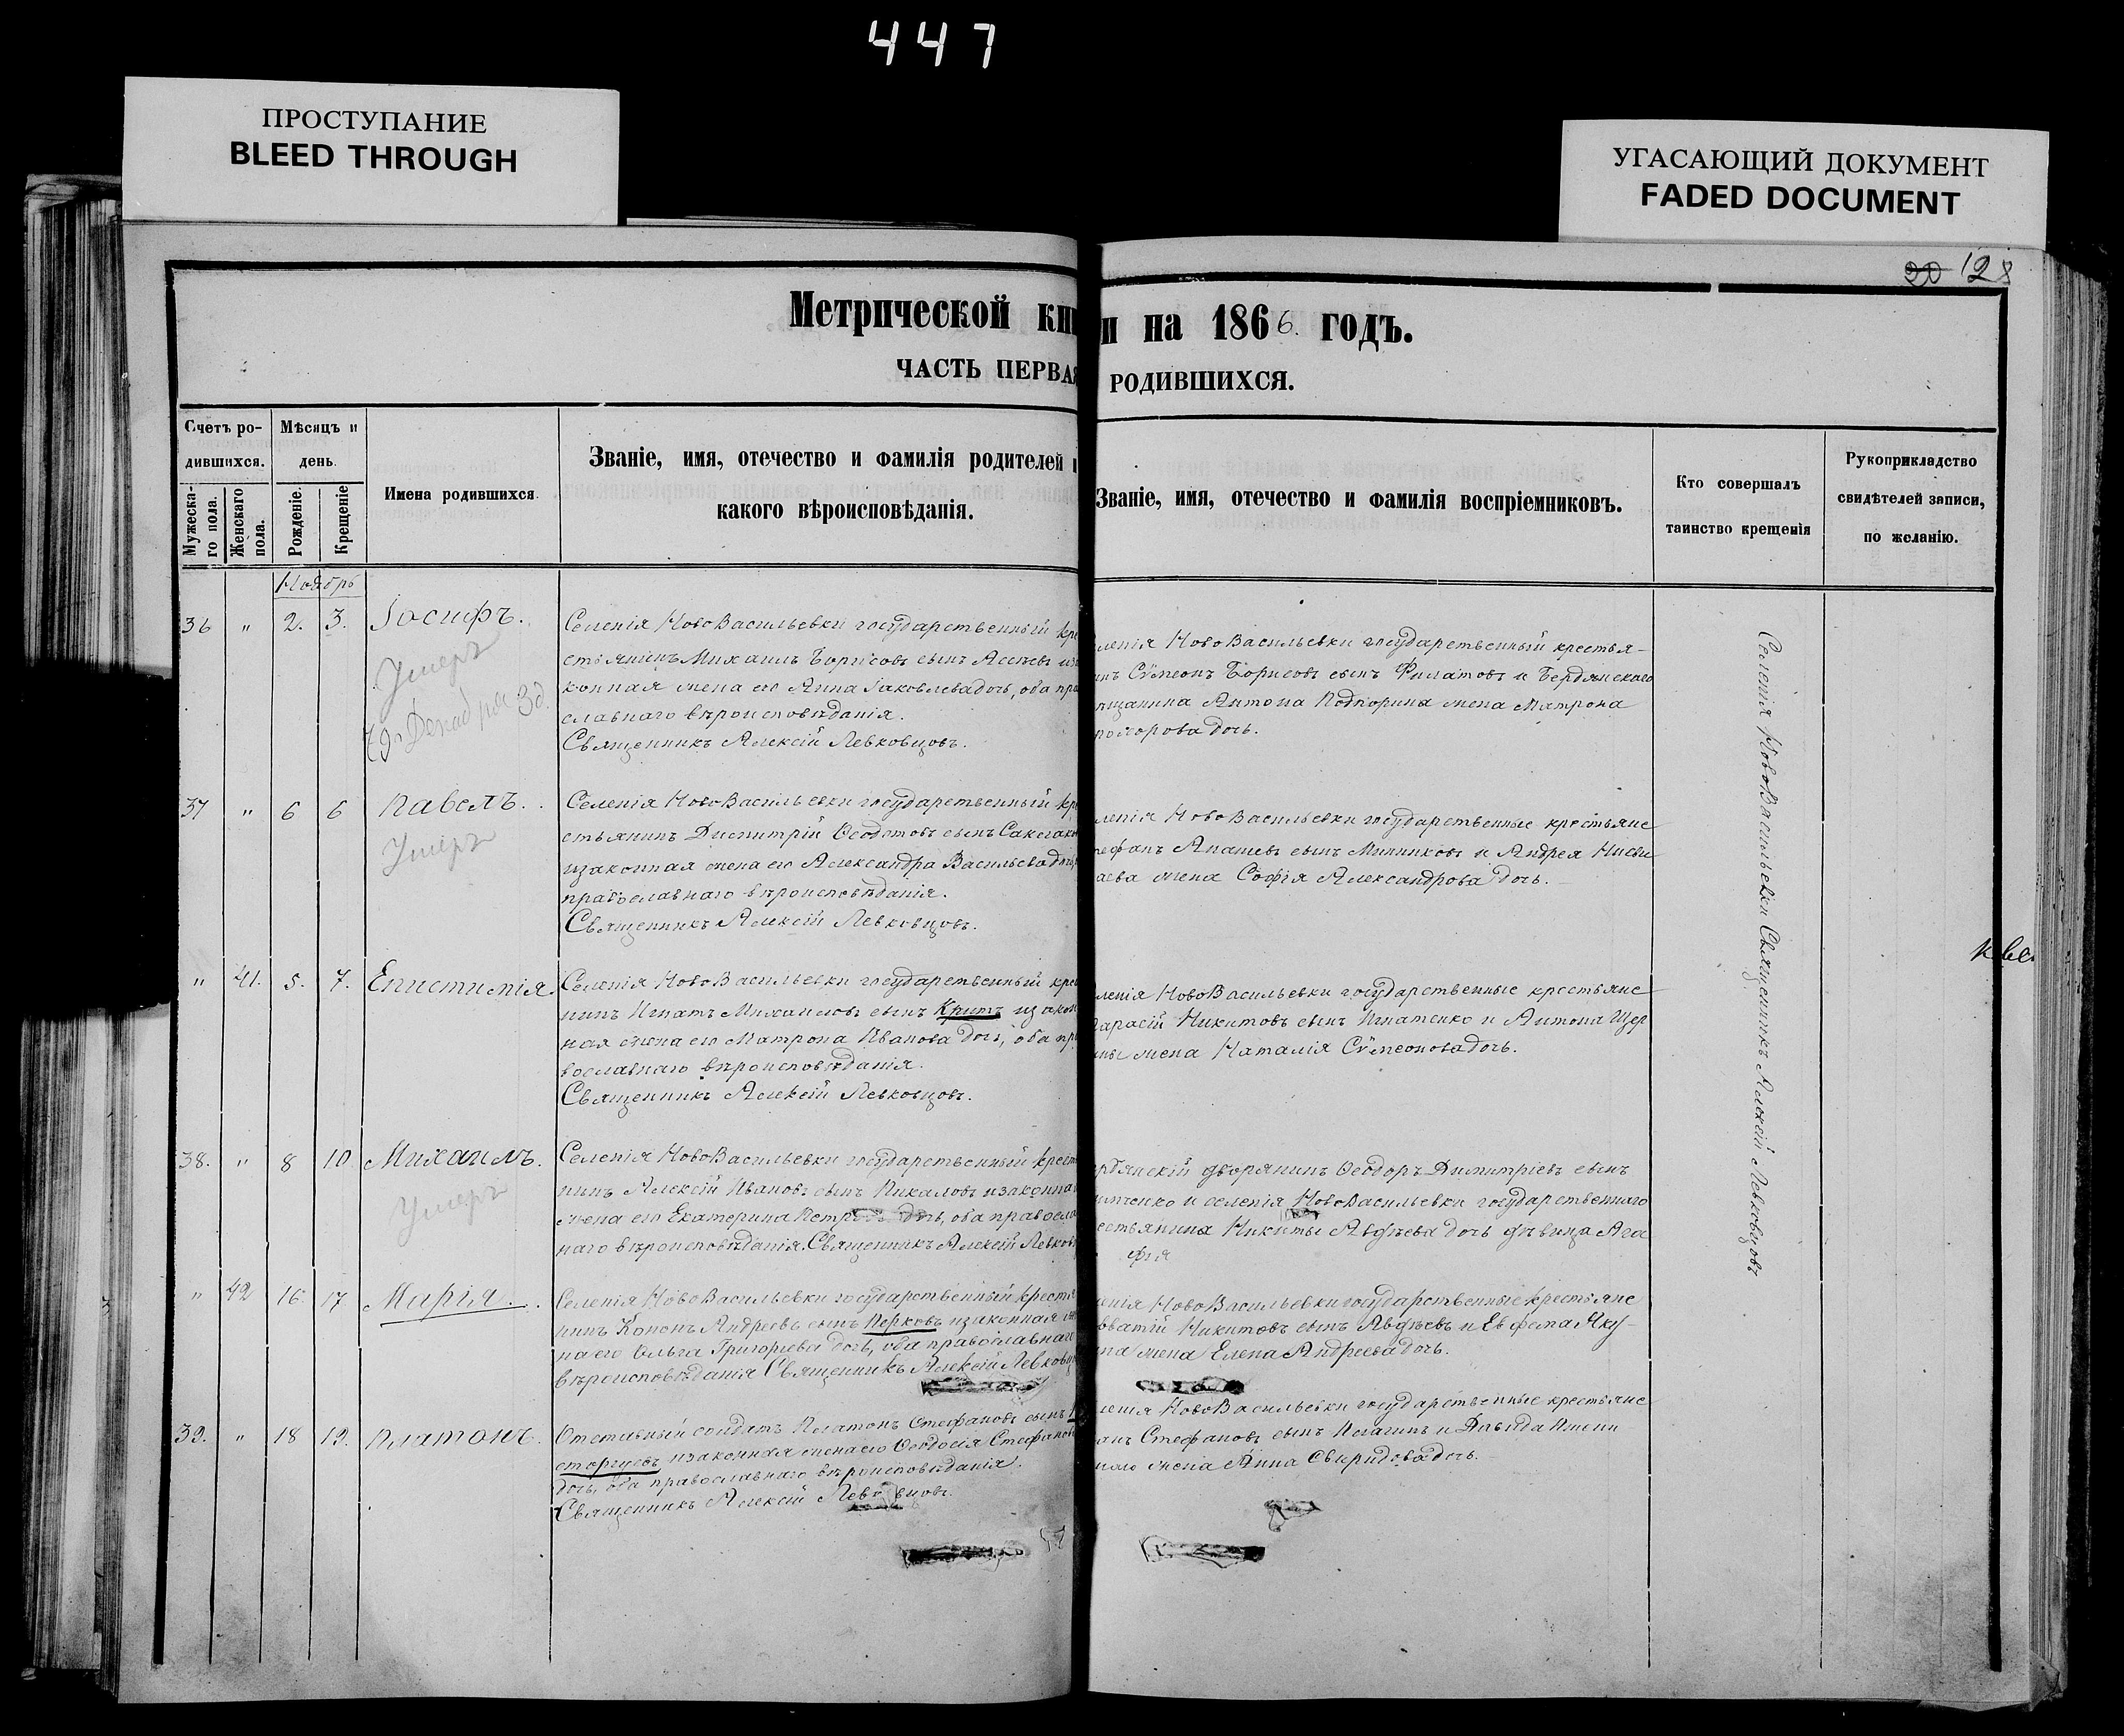 447
ПРОСТУПАНИЕ
BLEED THROUGH
УГАСАЮЩИЙ ДОКУМЕНТ
FADED DOCUMENT
20 128
Метрической кни
и на 1866. годъ.
ЧАСТЬ ПЕРВАЯ
РОДИВШИХСЯ.
Счетъ ро-
дившихся.
Мужеска-
го пола.
Женскаго
пола.
Мѣсяцъ и
день.
Рожденіе.
Крещеніе
Имена родившихся.
Званіе, имя, отечество и фамилія родителей и
какого вѣроисповѣданія.
Званіе, имя, отечество и фамилія воспріемниковъ.
Кто совершалъ
таинство крещенія
Рукоприкладство
свидѣтелей записи,
по желанію.
Ноябрь
36 " 2. 3. Іосифъ.
Умеръ
Декабря 3д.
Селенія НовоВасильевки государственный кре
стьянинъ Михаилъ Борисовъ сынъ изъ
конная жена его Анна Іаковлева дочь, оба пра
славнаго вѣроисповѣданія.
Священникъ Алексій Левковцовъ.
леніа НовоВасильевки государственный крестья-
нъ Сѵмеонъ Борисовъ сынъ Филатовъ и Бердянскаго
щанина Антона Подпорина жена Матрона
дочь.
37 " 6 6 Павелъ.
Умеръ
Селенія НовоВасильевки государственный кре
стьянинъ Димитрій Ѳеодотовъ сынъ
изаконная жена его Александра Васильева дочь,
православнаго вѣроисповѣданія.
Священникъ Алексій Левковцовъ.
ленія НовоВасильевки государственные крестьяне
ефанъ сынъ Минниковъ и Андрея
аева жена Софія Александрова дочь.
" 41. 5. 7. Епистимія.
Селенія НовоВасильевки государственный кре
нинъ Игнатъ Михаиловъ сынъ Критъ изакон
ная жена его Матрона Иванова дочь, оба пр
вославнаго вѣроисповѣданія.
Священникъ Алексій Левковцовъ.
ленія НовоВасильевки государственные крестьяне
арасій Никитовъ сынъ Игнатенко и Антона Щер
ны жена Наталія Сѵмеонова дочь.
38. " 8 10 Михаилъ.
Умеръ
Селенія НовоВасильевки государственный крест
нинъ Алексій Ивановъ сынъ Пикаловъ изаконна
жена его Екатерина Петрова дочь, оба правосла
наго вѣроисповѣданія. Священникъ Алексій Левков
рдянскій дворянинъ Ѳеодоръ Димитріевъ сынъ
ипченко и селенія НовоВасильевки государственнаго
естьянина Никиты Авдѣева дочь дѣвица Ага
фія
" 42 16. 17 Марія.
Селенія НовоВасильевки государственный кресть
нинъ Кононъ Андреевъ сынъ Перковъ изаконная же
на его Ольга Григорьева дочь, оба православнаго
вѣроисповѣданія Священникъ Алексій Левковц
ленія НовоВасильевки государственные крестьяне
вватій Никитовъ сынъ Авдѣевъ и Ефема Яку-
на жена Елена Андреева дочь.
39. " 18 19. Платонъ.
Отставный солдатъ Платонъ Стефановъ сынъ
сторгуевъ изаконная жена его Ѳеодосія Стефанов
дочь, оба православнаго вѣроисповѣданія.
Священникъ Алексій Левковцовъ.
ленія НовоВасильевки государственные крестьяне
анъ Стефановъ сынъ и Давыда
наго жена Анна Свиридова дочь.
Селенія НовоВасильевки Священникъ Алексій Левковцовъ